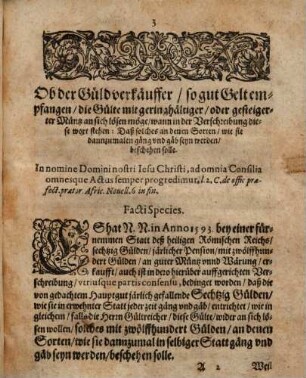 3
Ob der Gültverkäuffer / so gut Gelt em-
pfangen / die Gülte mit geringhältiger / oder gesteiger-
ter Müntz an sich lösen möge / wann in der Verschreibung die-
se wort stehen: Daß solches an denen Sorten / wie sie
dannzumalen gäng und gäb seyn werden /
beschehen solle.
In nomine Domini nostri Iesu Christi, ad omnia Consilia
omnesque Actus semper progredimur, l. 2. C. de offic. præ-
fect. prætor. Afric. Novell. 8. in fin.
Facti Species.
ES hat N. N. in Anno 1593. bey einer für-
nemmen Statt deß heiligen Römischen Reichs /
sechtzig Gülden / järlicher Pension, mit zwölffhun-
dert Gülden / an guter Müntz und Wärung / er-
kaufft / auch ist in dero hierüber auffgerichten Ver-
schreibung / utriusque partis consensu, bedinget worden / daß die
von gedachtem Hauptgut järlich gefallende Sechtzig Gülden /
wie sie in ernwehnter Statt jeder zeit gäng und gäb / entrichtet / wie in
gleichem / falls die Herrn Gültreicher / diese Gülte / wider an sich lö-
sen wollen / solches mit zwölffhundert Gülden / an denen
Sorten / wie sie dannzumal in selbiger Statt gäng und
gäb seyn werden / beschehen solle.
A 2 Weil